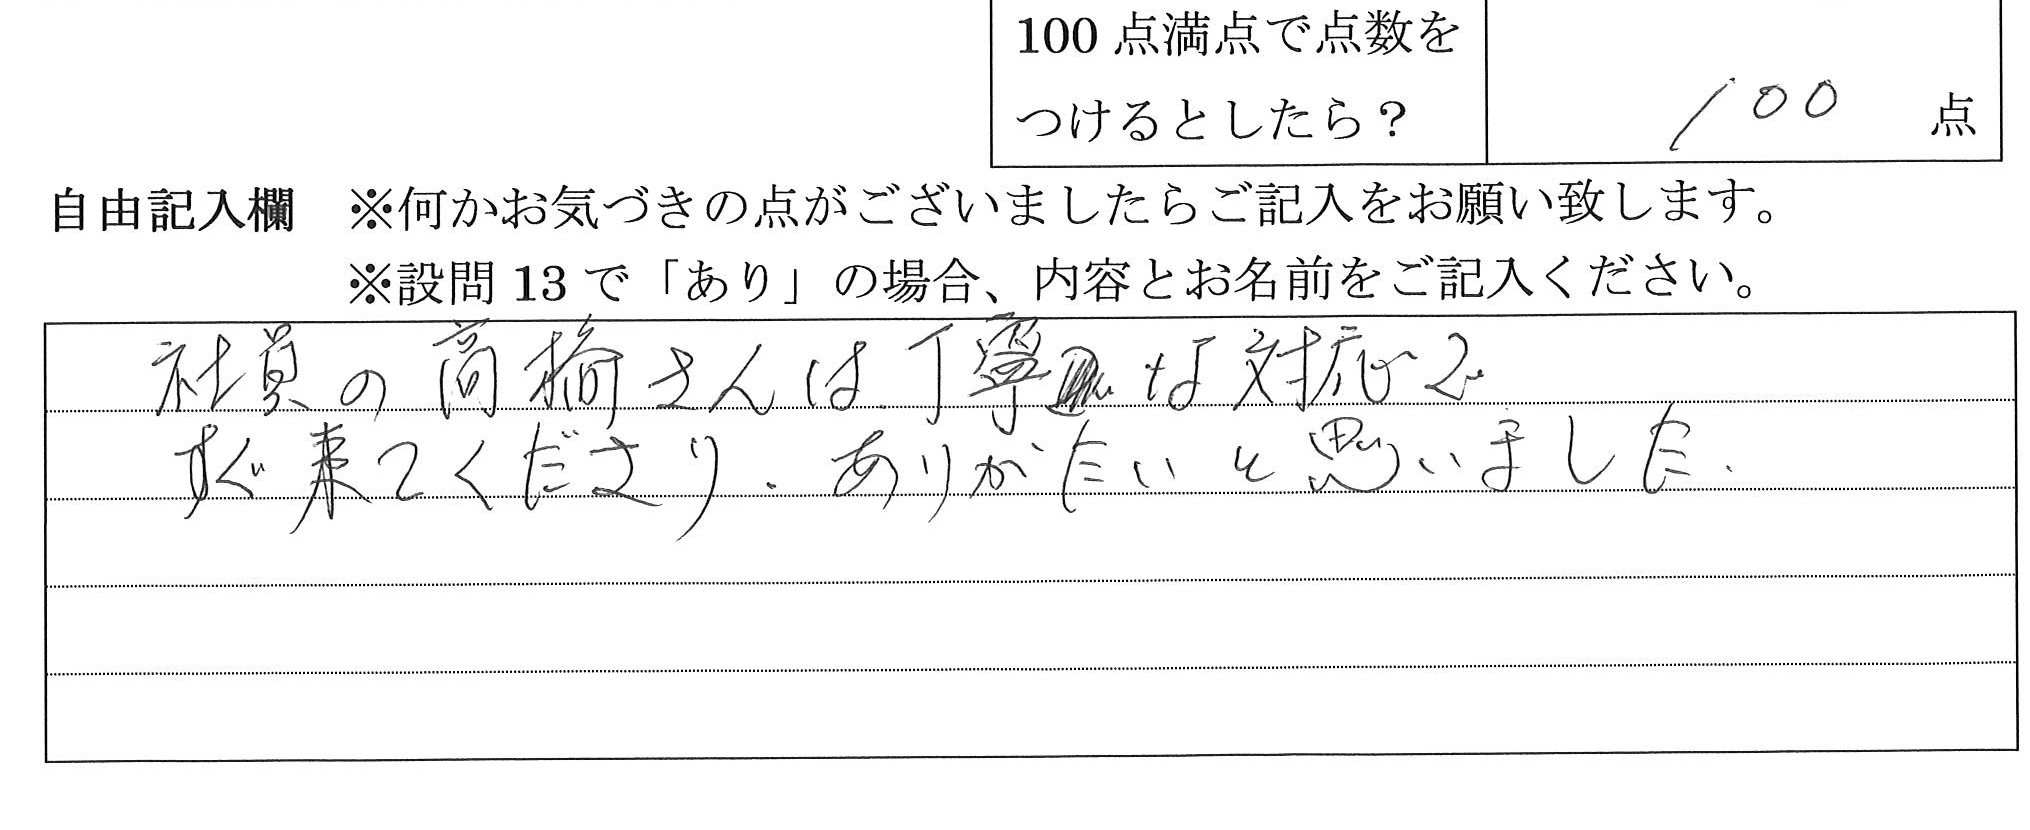 100 点満点で点数を
つけるとしたら?
100 点
自由記入欄 ※何かお気づきの点がございましたらご記入をお願い致します。
※設問 13 で「あり」の場合、内容とお名前をご記入ください。
社員の高橋さんは丁寧な対応で
すぐ来てくださり、ありがたいと思いました。